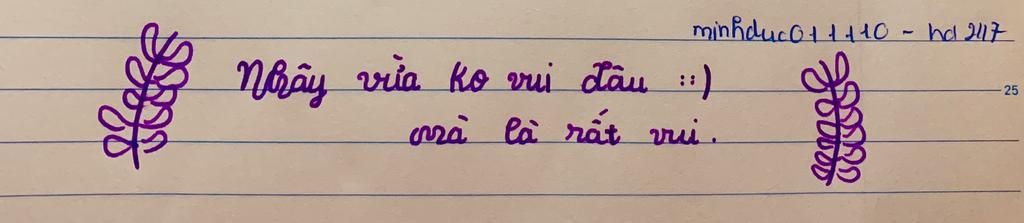 minhduc011110 - hd 247
Nhây vừa ko vui đâu ::)
25
mà là rất vui.